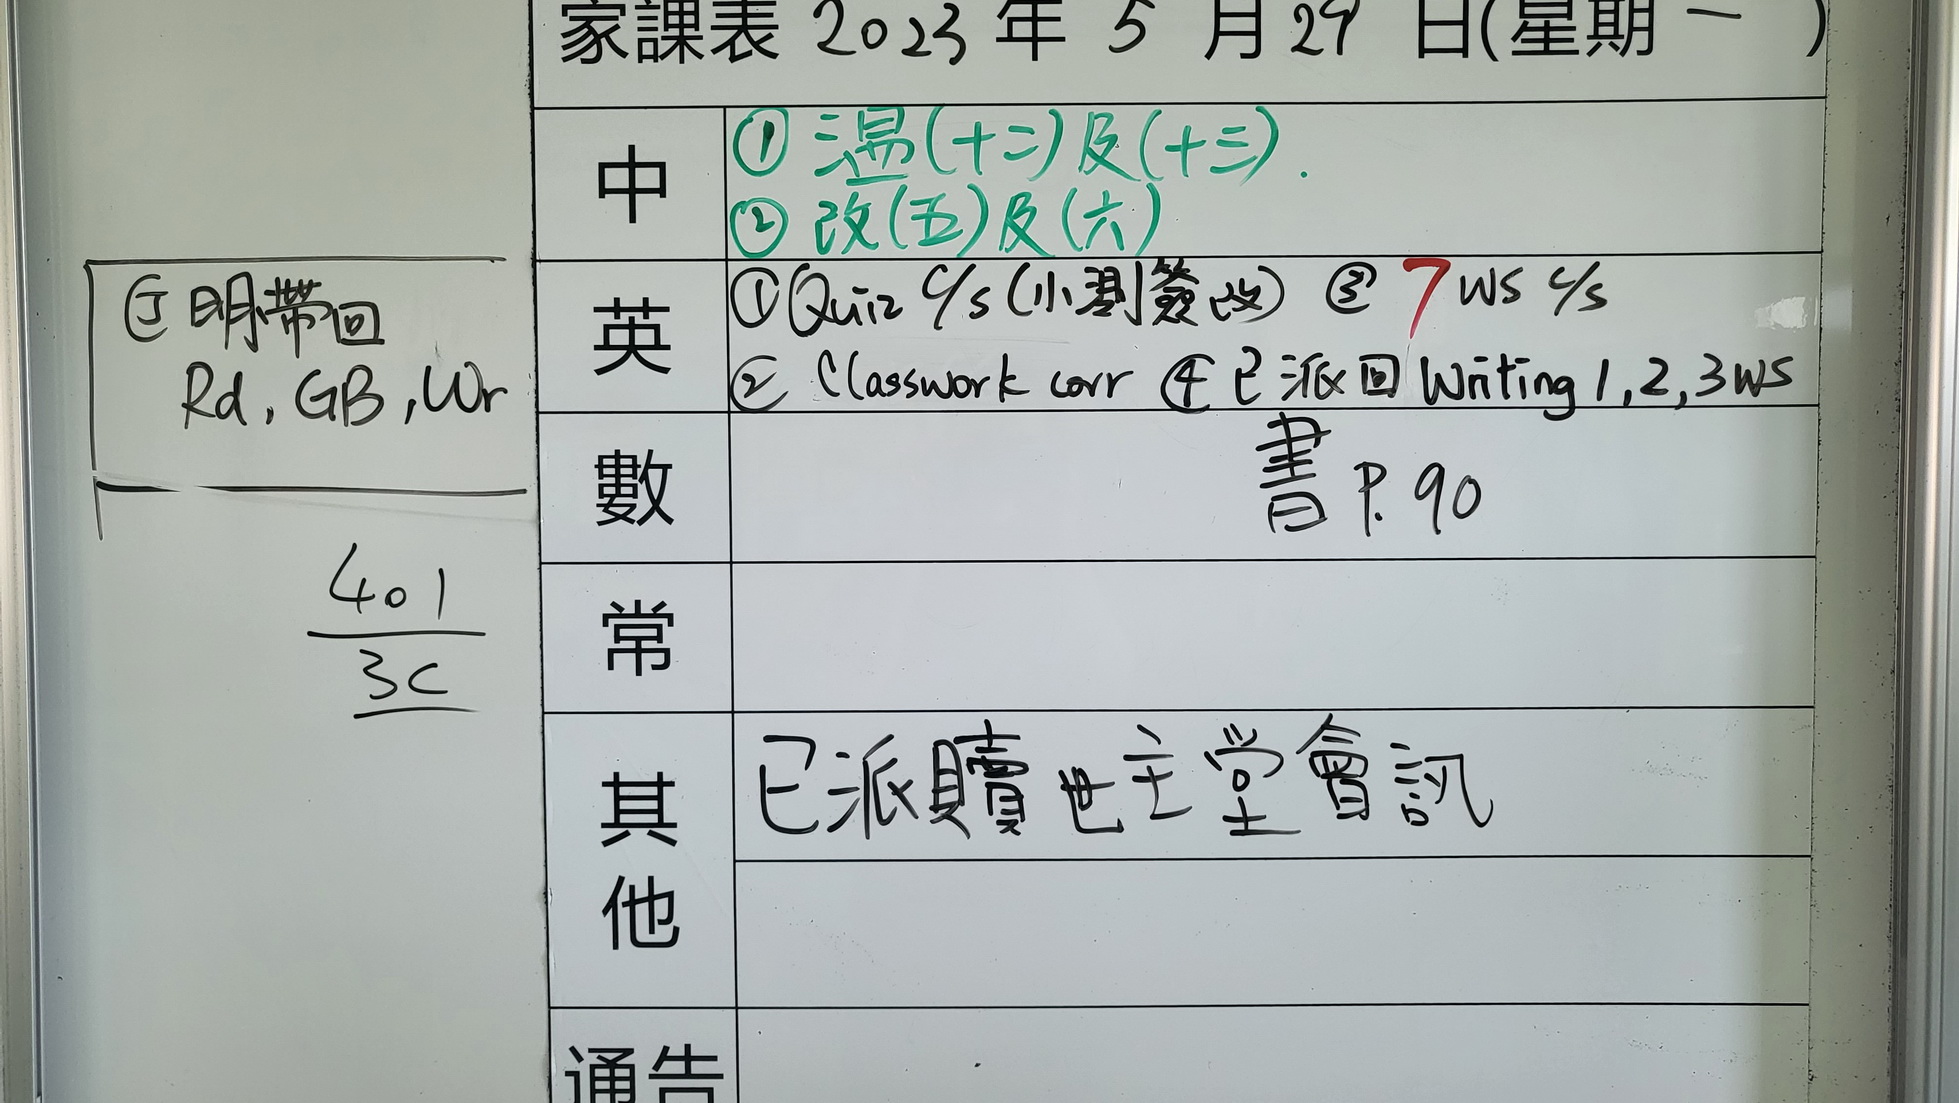 家課表 2023 年 5 月 29 日(星期 一 )
中
① 溫(十二)及(十三).
② 改(五)及(六)
英
① Quiz c/s (小測簽改) ③ 7 WS c/s
② Classwork corr ④ 已派回 Writing 1, 2, 3 WS
明帶回
Rd, GB, Wr
數
書 P. 90
401
3C
常
其他
已派贖世主堂會訊
通告